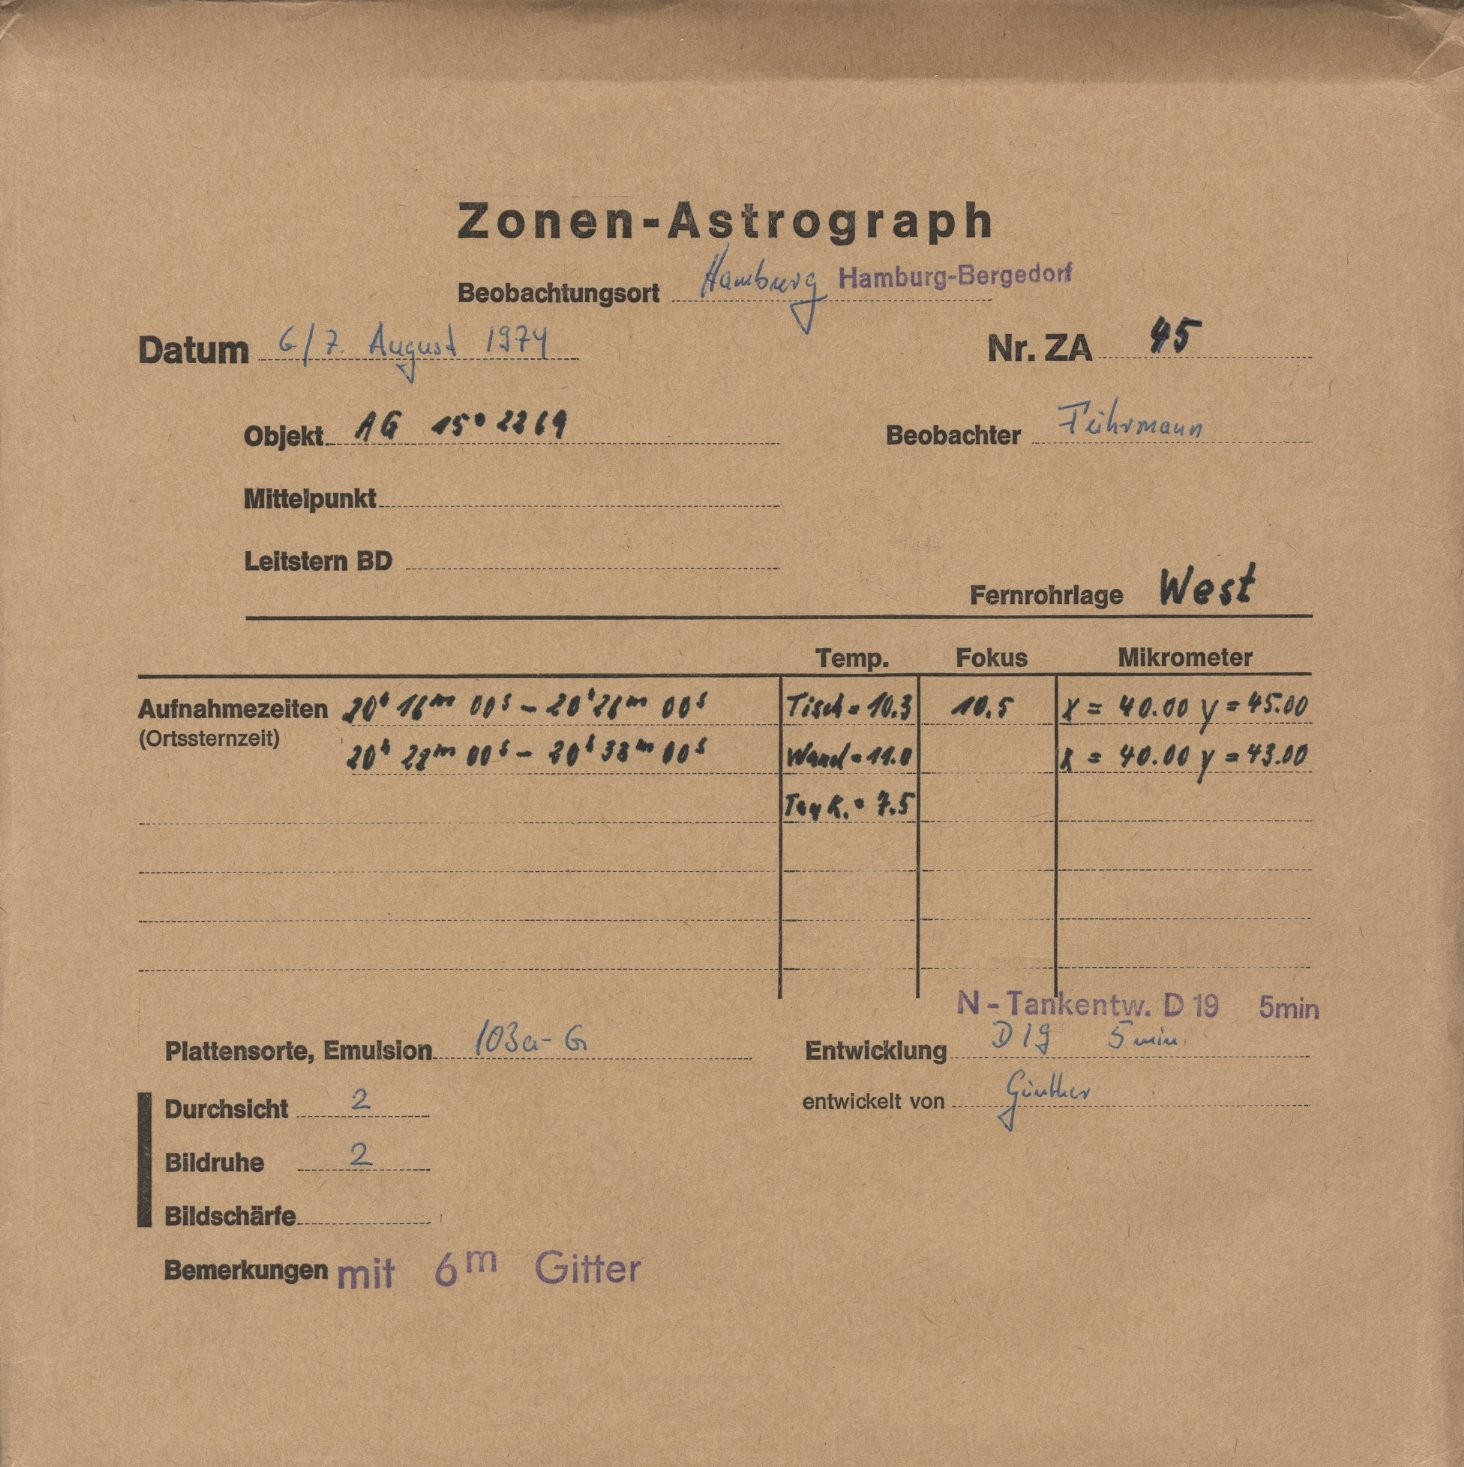 Zonen-Astrograph
Beobachtungsort Hamburg Hamburg-Bergedorf
Datum 6/7. August 1974 Nr. ZA 45
Objekt AG 15° 2269 Beobachter Führmann
Mittelpunkt
Leitstern BD
Fernrohrlage West
Temp. Fokus Mikrometer
Aufnahmezeiten 20h 16m 00s – 20h 26m 00s Tisch = 10.3 10.5 x = 40.00 y = 45.00
(Ortssternzeit)
20h 28m 00s – 20h 38m 00s Wand = 11.0 x = 40.00 y = 43.00
K. = 7.5
N - Tankentw. D 19 5min
Plattensorte, Emulsion 103a-G Entwicklung D 19 5 min.
Durchsicht 2 entwickelt von Günther
Bildruhe 2
Bildschärfe
Bemerkungen mit 6m Gitter